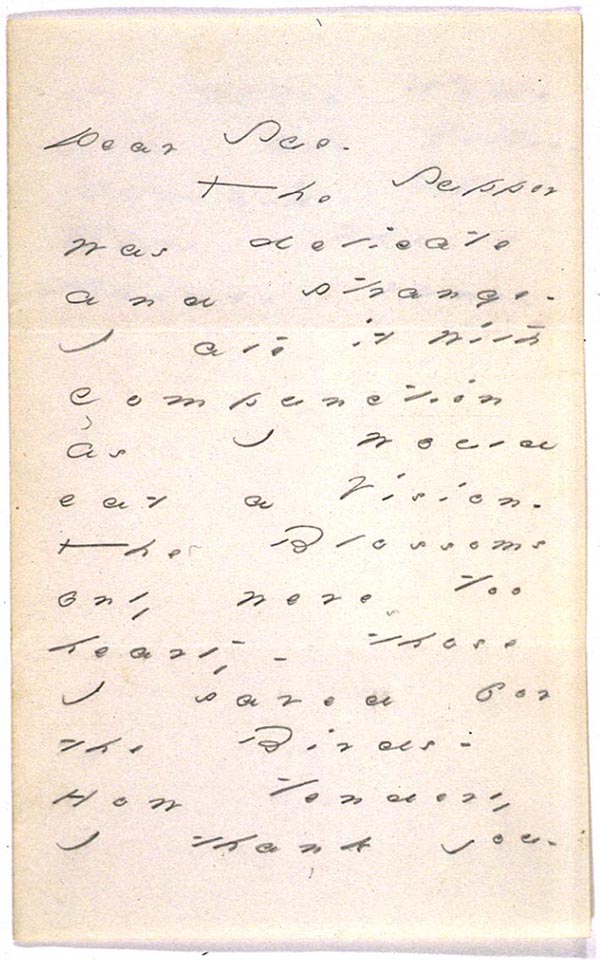 Dear Sue -
The Supper
was delicate
and strange -
I ate it with
Compunction
As I would
eat a Vision -
The Blossoms
only were too
hearty - those
I saved for
the Birds -
How tenderly
I thank you -